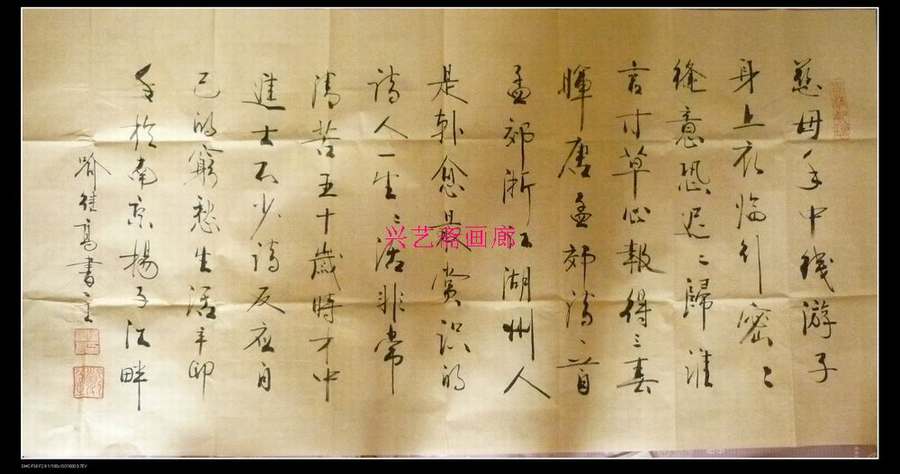 慈母手中綫游子
身上衣临行密〻
縫意恐迟〻歸谁
言寸草心報得三春
暉唐孟郊诗一首
孟郊浙江湖州人
是韩愈最赏识的
诗人一生〻活非常
清苦五十歲時才中
進士不少诗反应自
己的窮愁生活辛卯
年於南京揚子江畔
高書
画廊